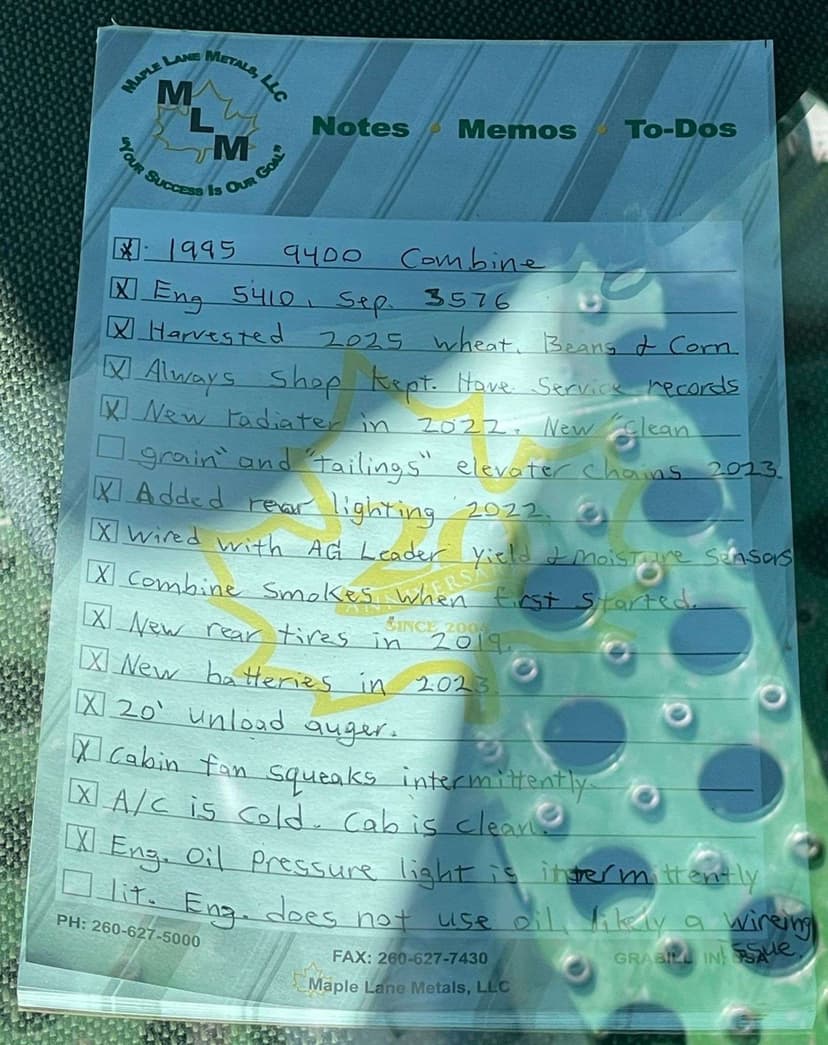 MAPLE LANE METALS, LLC
MLM
"YOUR SUCCESS IS OUR GOAL"
Notes • Memos • To-Dos
1995 9400 Combine
Eng 5410, Sep. 3576
Harvested 2025 wheat, Beans & Corn
Always Shop kept. Have Service records
New radiater in 2022. New "clean
grain" and "tailings" elevater chains 2023.
Added rear lighting 2022.
Wired with AG Leader Yield & moisture sensors
Combine smokes when first started.
New rear tires in 2019.
New batteries in 2023.
20' unload auger.
Cabin fan squeaks intermittently.
A/C is cold. Cab is clean.
Eng. Oil pressure light is intermittently
lit. Eng. does not use oil, likely a wireing
issue.
20
ANNIVERSARY
SINCE 2004
PH: 260-627-5000
FAX: 260-627-7430
GRABILL IN
Maple Lane Metals, LLC